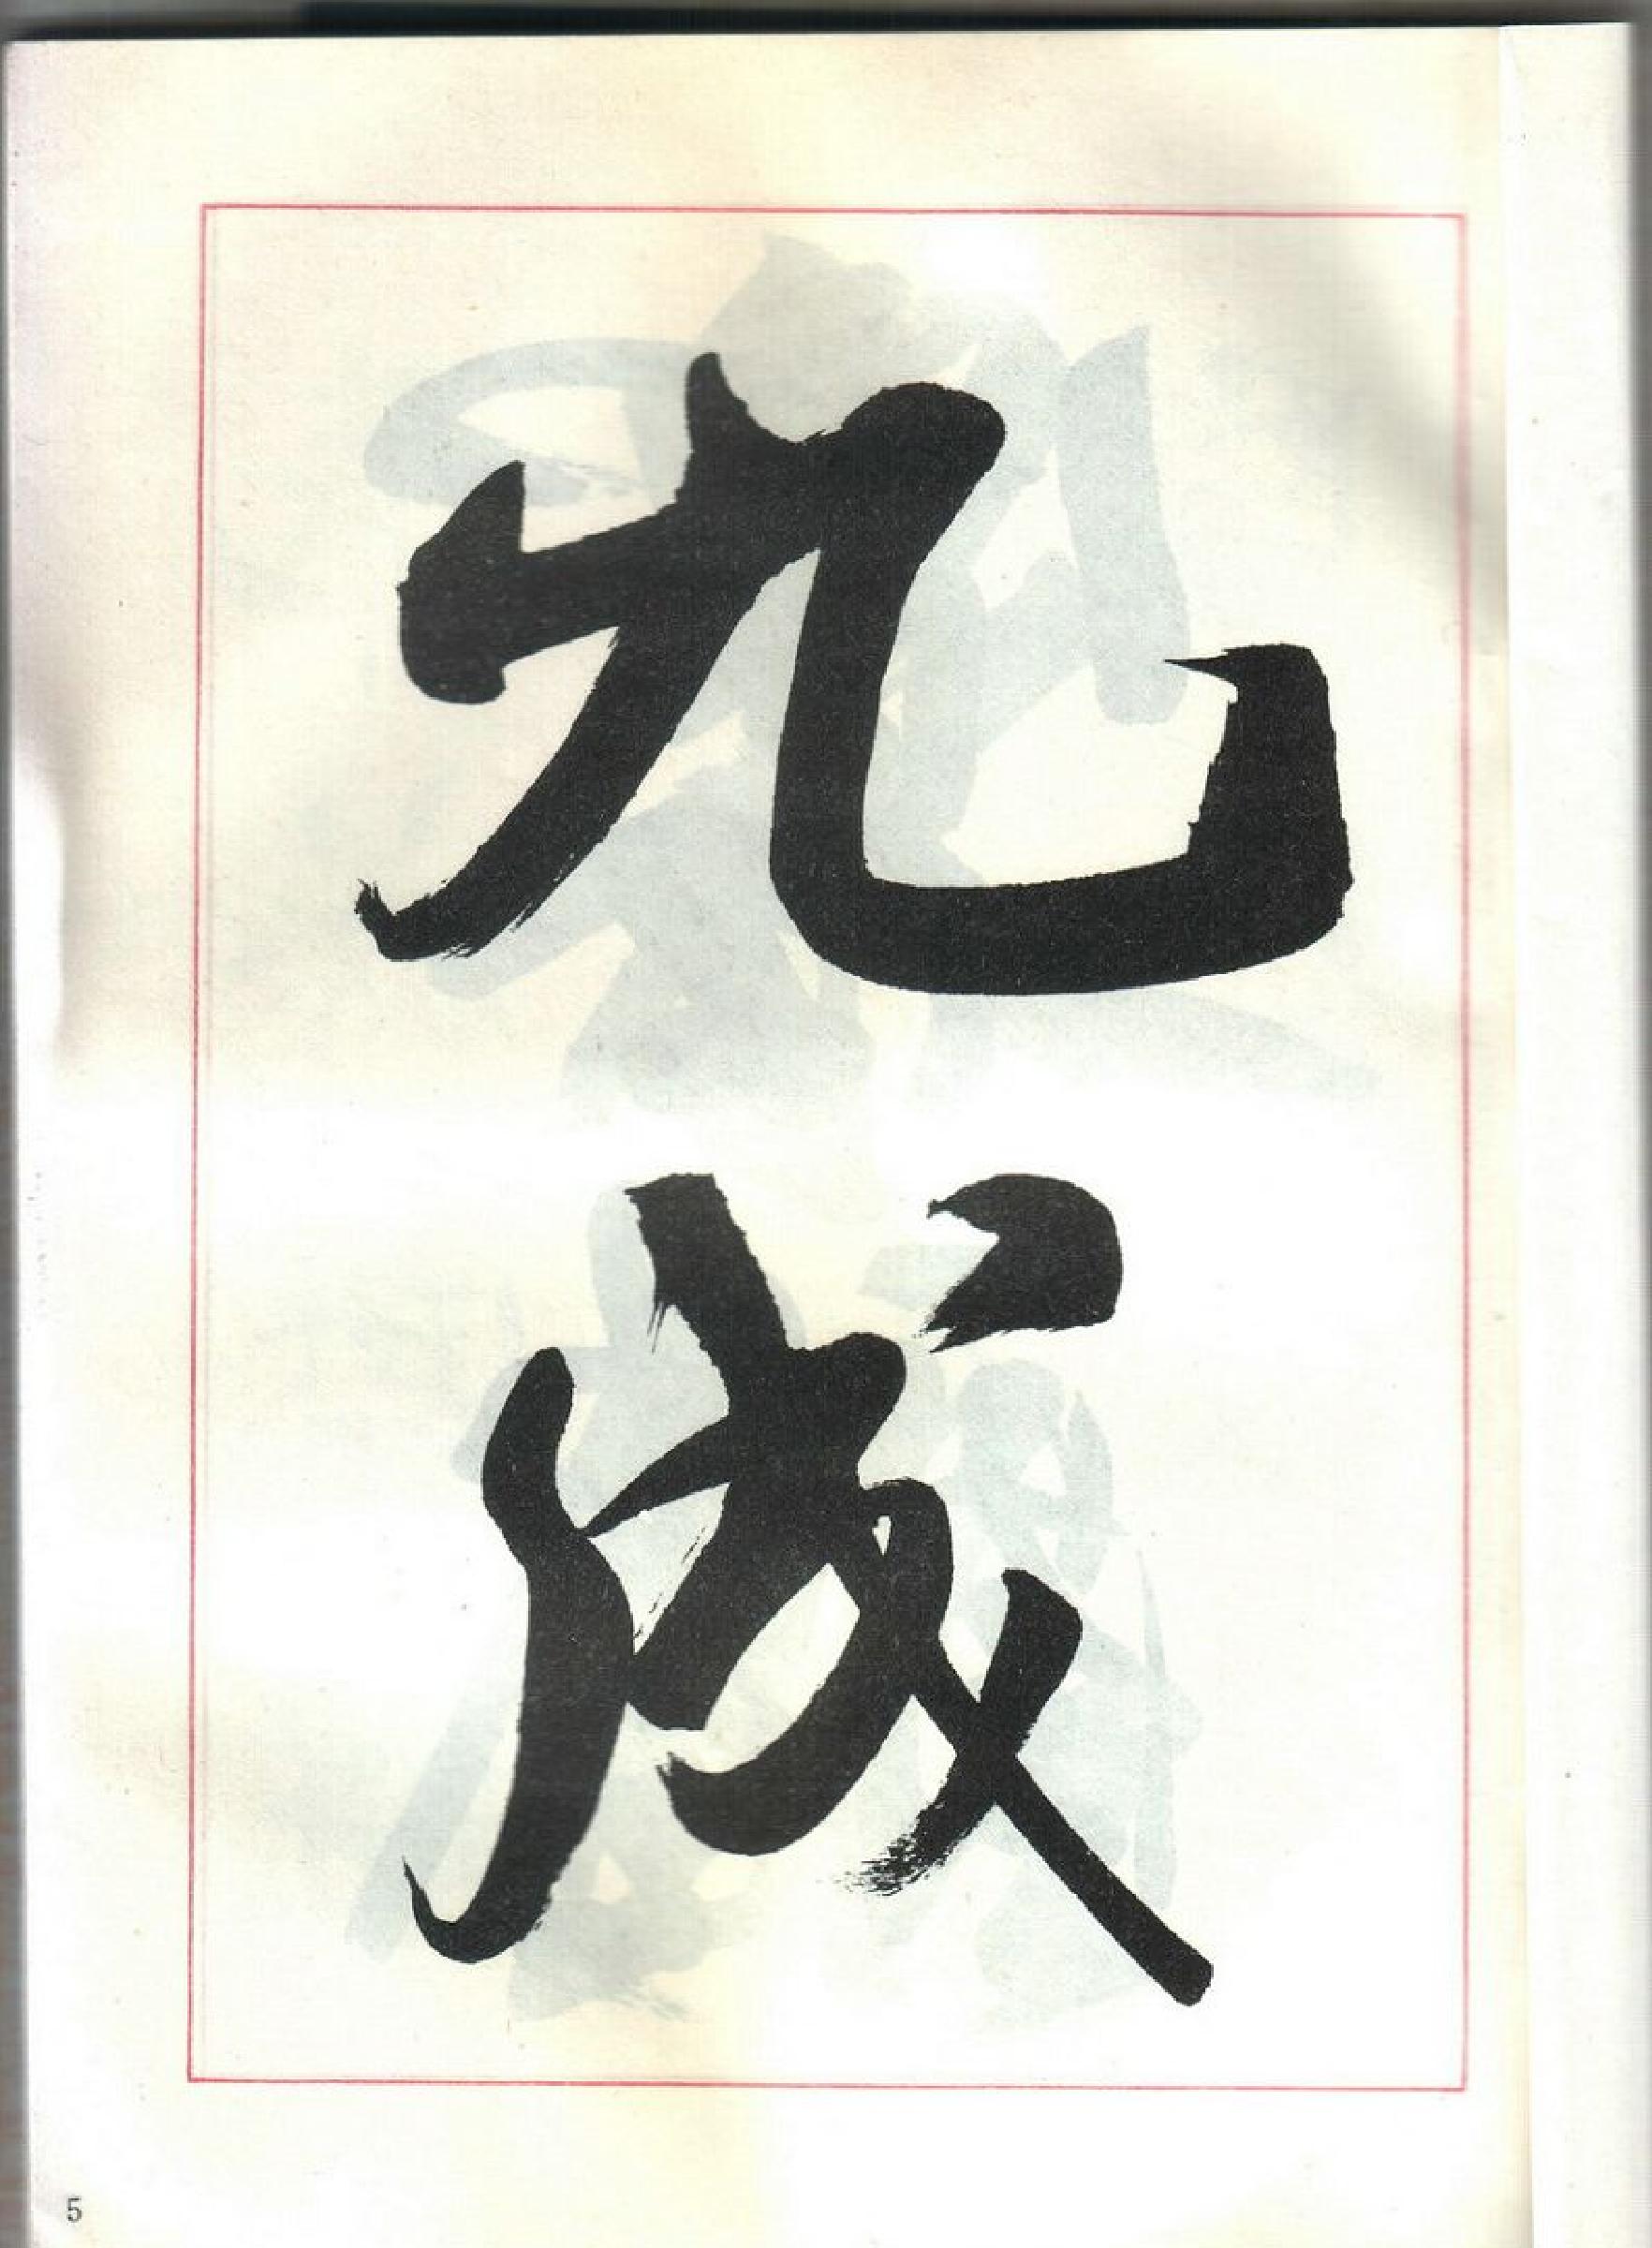 九
成
5